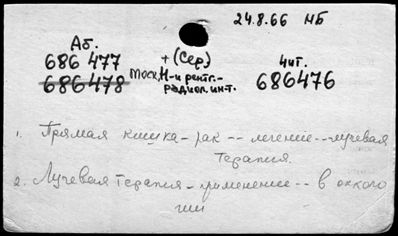 24.8.66 НБ
Аб.
686 477 + (Сер) Чит.
686 478 Моск. Н-и рентг.- 686476
радиол. инт.
1. Прямая кишка - рак -- лечение -- лучевая
терапия.
2. Лучевая терапия - применение -- в онколо
гии